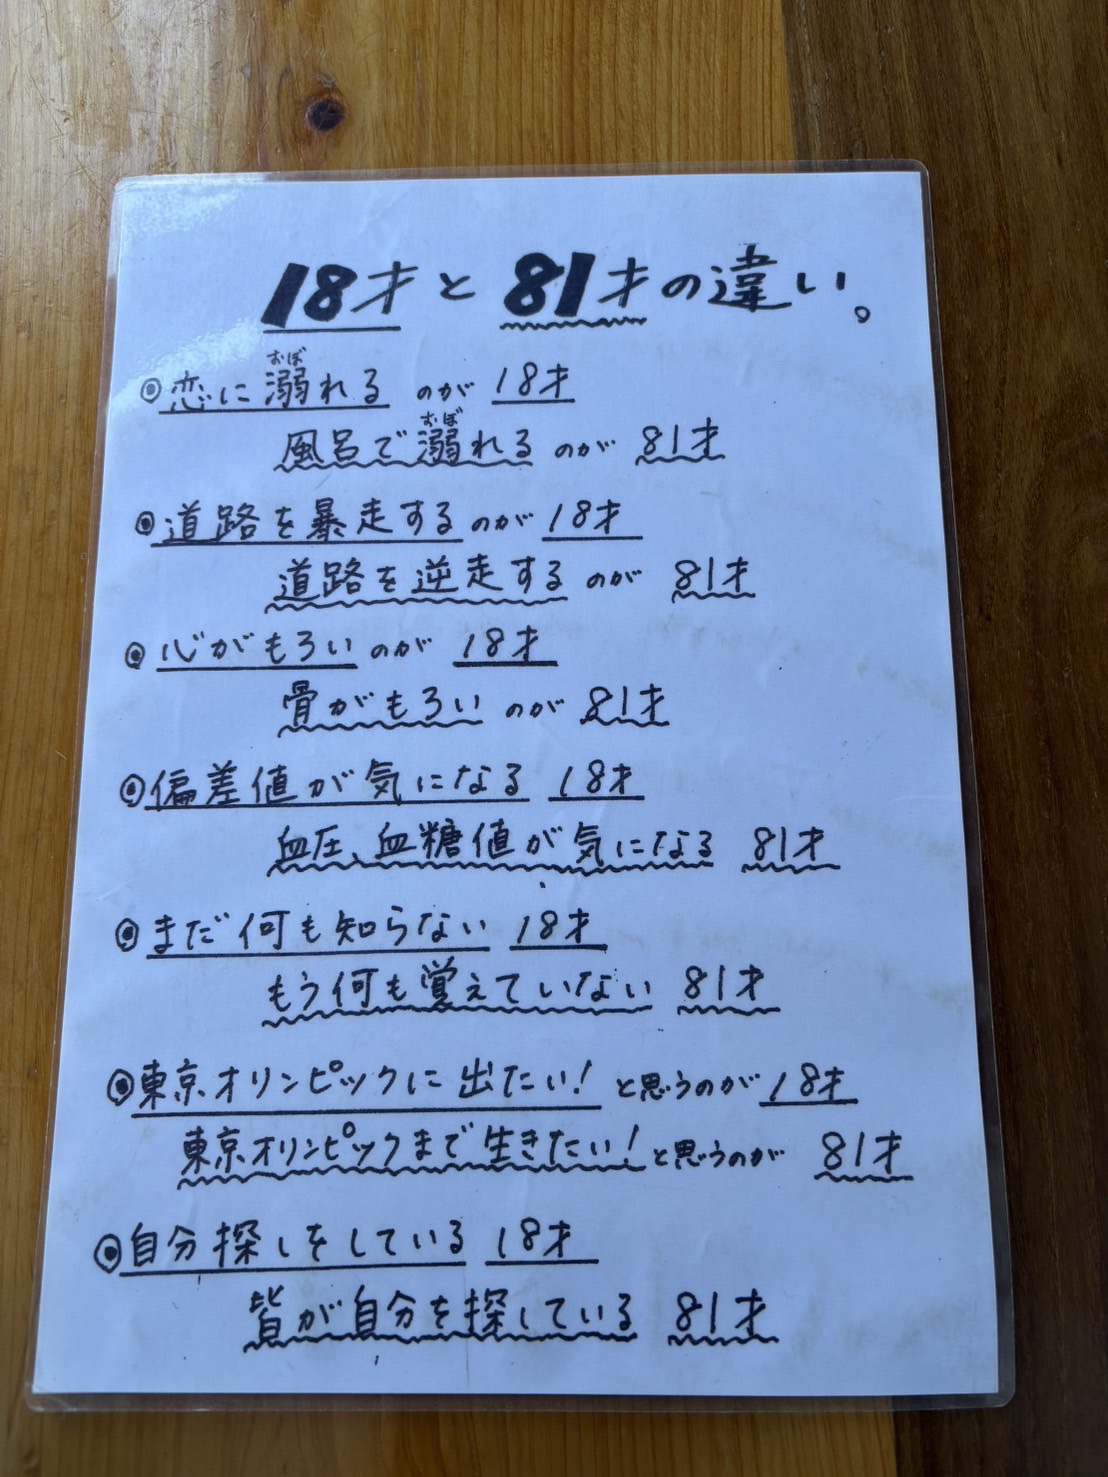 18才と81才の違い。
◉恋に溺れるのが18才
おぼ
風呂で溺れるのが81才
おぼ
◉道路を暴走するのが18才
道路を逆走するのが81才
◉心がもろいのが18才
骨がもろいのが81才
◉偏差値が気になる18才
血圧、血糖値が気になる81才
◉まだ何も知らない18才
もう何も覚えていない81才
◉東京オリンピックに出たい!と思うのが18才
東京オリンピックまで生きたい!と思うのが81才
◉自分探しをしている18才
皆が自分を探している81才